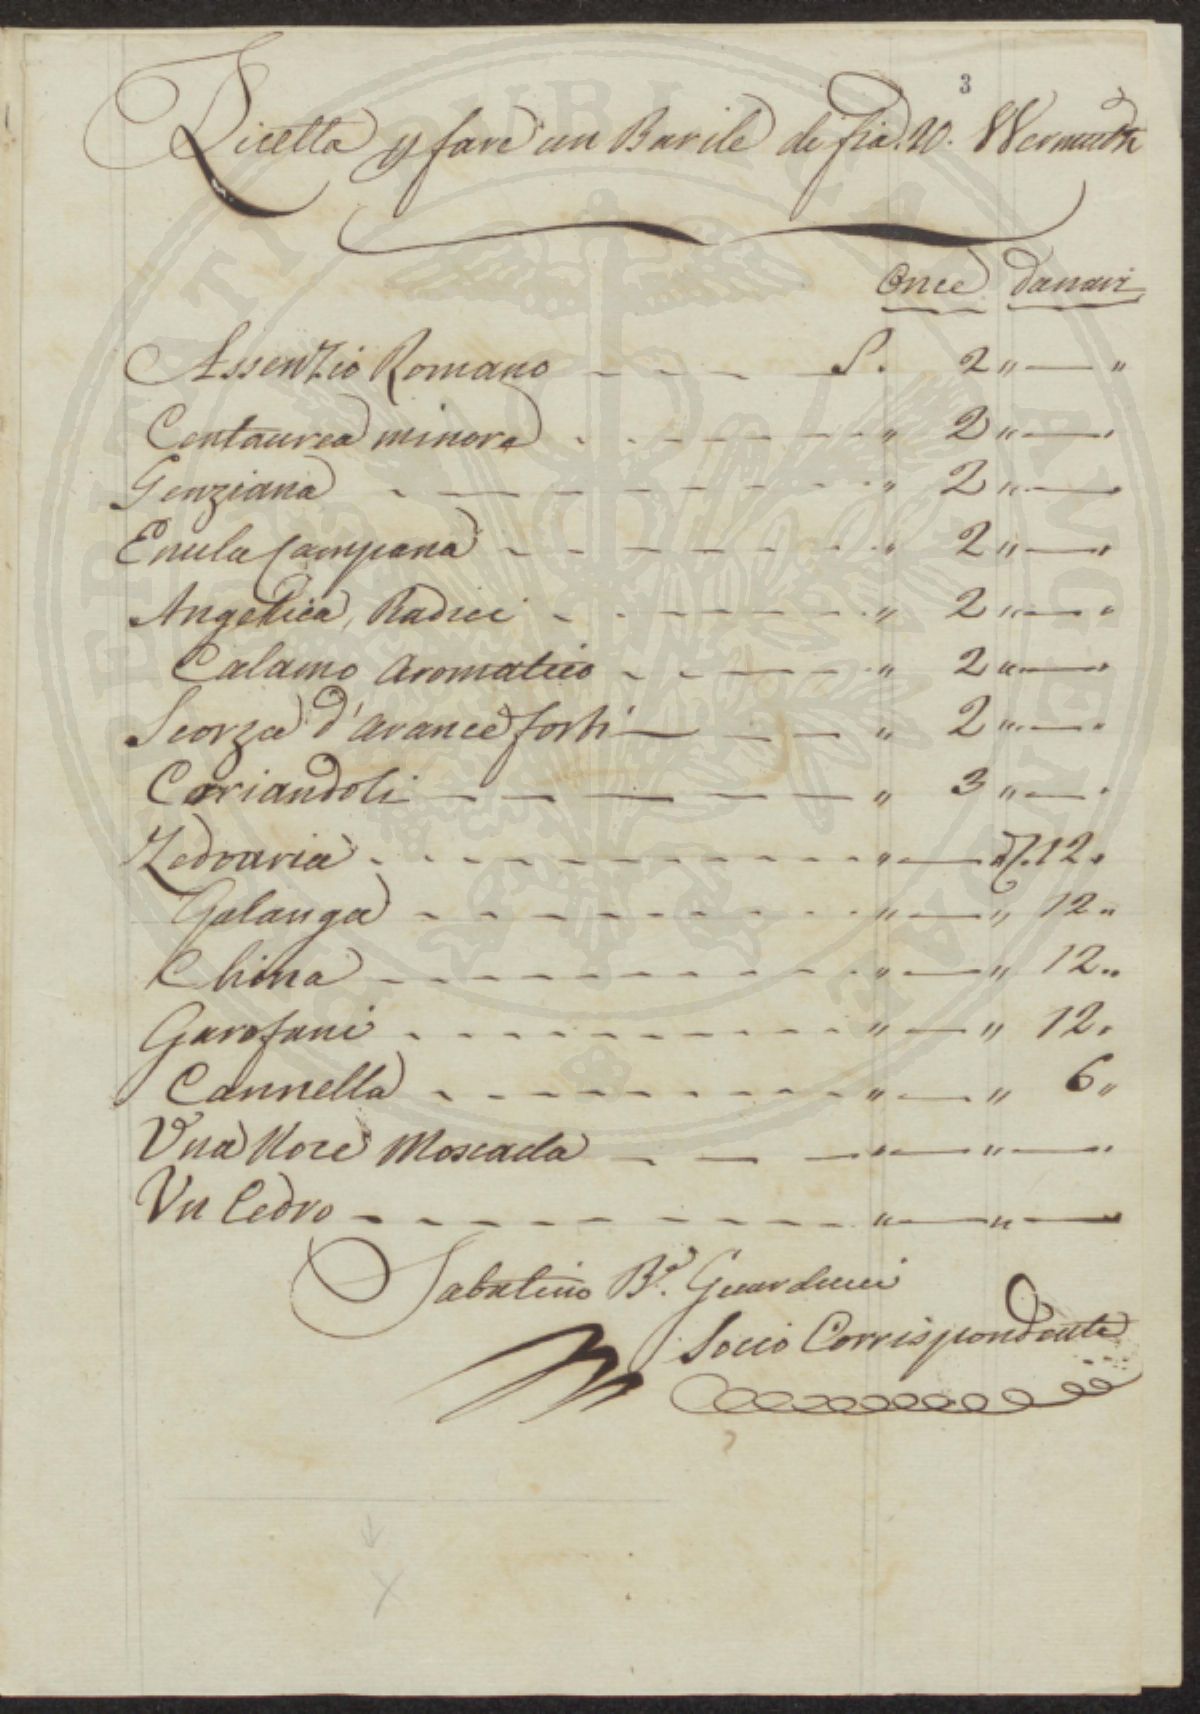 3
Ricetta p fare un Barile di fia. 20. Wermuth
Once danari
Assenzio Romano - - - - S. 2 „ — „
Centaurea minore - - - - - - „ 2 „ — „
Genziana - - - - - - - - „ 2 „ — „
Enula Campana - - - - - - - „ 2 „ — „
Angelica, Radici - - - - - - „ 2 „ — „
Calamo Aromatico - - - - - „ 2 „ — „
Scorza d'Arance forti — - - „ 2 „ — „
Coriandoli - - - - - - „ 3 „ — „
Zedoaria - - - - - - - - „ — „ 12 „
Galanga - - - - - - - - „ — „ 12 „
China - - - - - - - - „ — „ 12 „
Garofani - - - - - - - - „ — „ 12 „
Cannella - - - - - - - - „ — „ 6 „
Una Noce Moscada - - - „ — „ — „
Un Cedro - - - - - - - - „ — „ — „
Sabatino B.a Guarducci
Socio Corrispondente